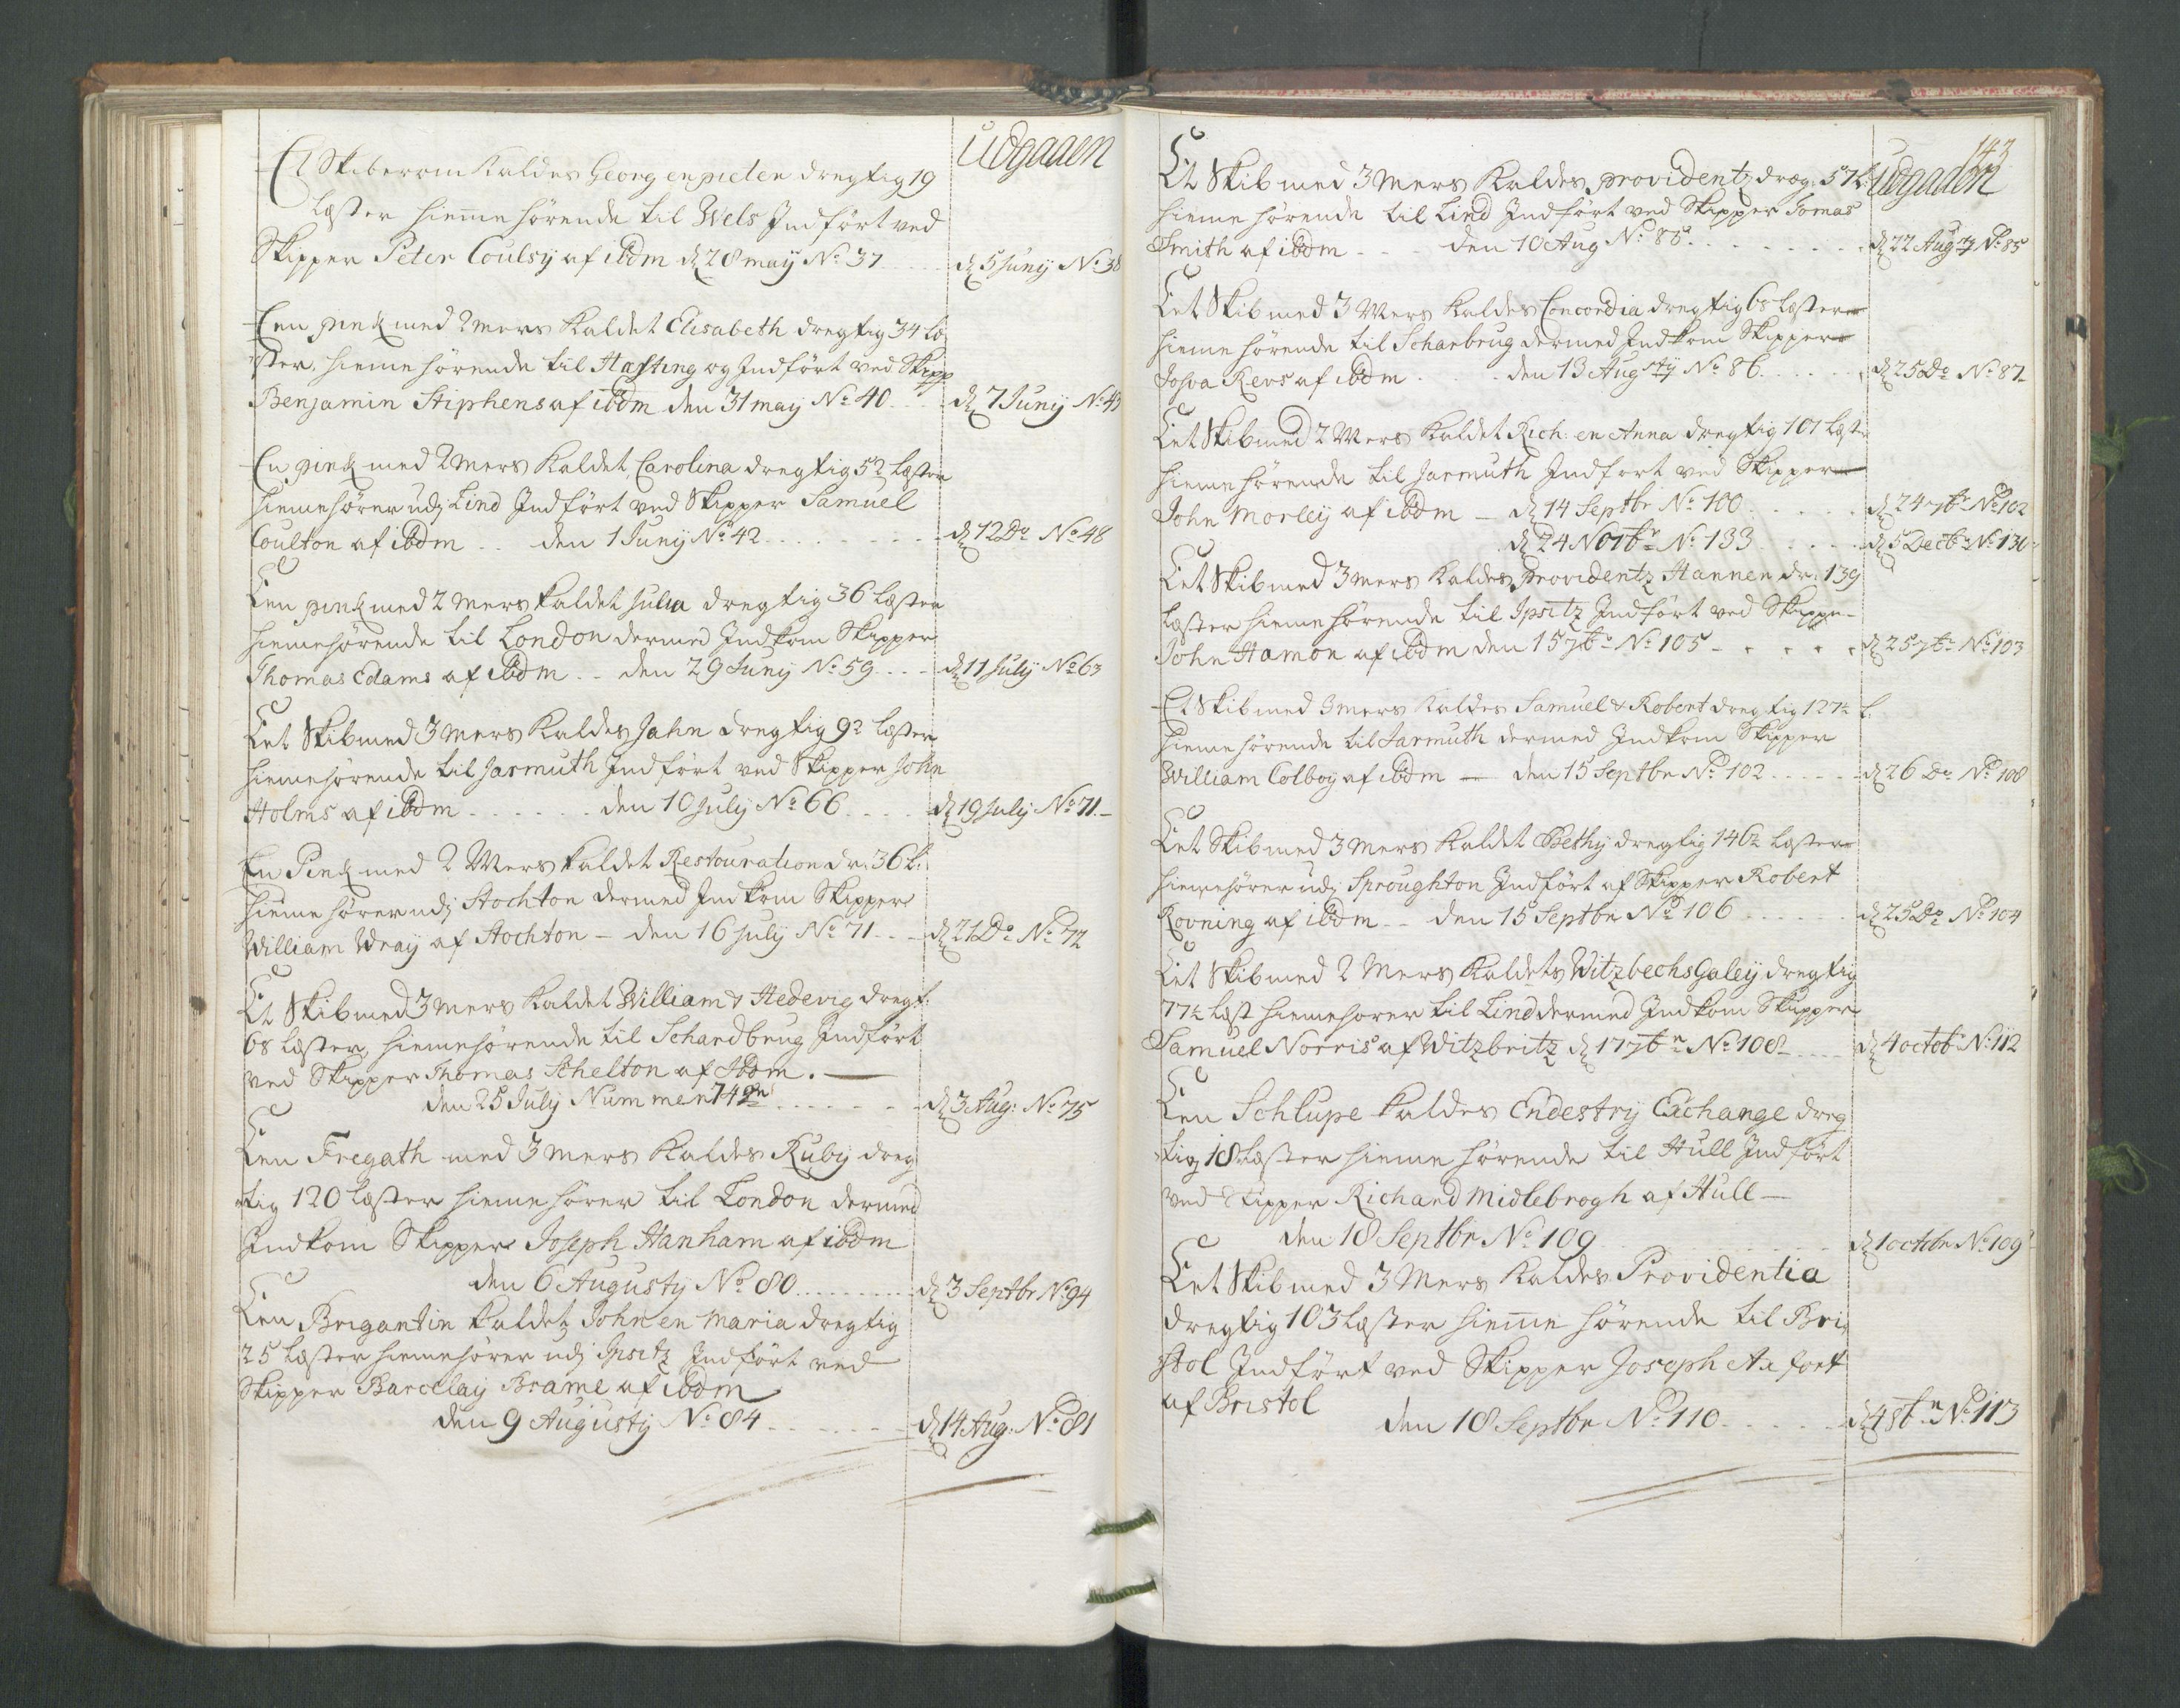 Udgaaen
Et Skiberom Kaldes Georg en pieter dregtig 19
Læster hieme hørende til Wels Indført ved
Skipper Peter Coulsy af ibdm d 28 may No 37 d 5 Juny No 38
Een pink med 2 mers Kaldet Elisabeth dregtig 34 Læ
ster, hieme hørende til Hasting og Indført ved Skipp
Benjamin Stiphens af ibdm den 31 may No 40 d 7 Juny No 43
En pink med 2 mers Kaldet Carolina dregtig 52 Læster
hieme hører udj Lind Indført ved Skipper Samuel
Coulton af ibdm den 1 Juny No 42 d 12 Do No 48
Een pink med 2 mers kaldet Julia dregtig 36 Læster
hiemehørende til London dermed Indkom Skipper
Thomas Edams af ibdm den 29 Juny No 59 d 11 July No 63
Eet Skib med 3 mers Kaldes Jahn dregtig 92 Læster
hiemehørende til Jarmuth Indført ved Skipper John
Holms af ibdm den 10 July No 66 d 19 July No 71
En Pink med 2 Mers kaldet Restouration dr: 36 L:
hieme hører udj Stochton dermed Indkom Skipper
William Wray af Stochton - den 16 July No 71 d 21 Do No 72
Et Skib med 3 mers Kaldet William & Hedevig dregt:
68 Læster, hiemehørende til Schardbrug Indført
ved Skipper Thomas Schelton af Ibdm.
den 25 July Nummer 74 d 3 Aug: No 75
Een Fregath med 3 mers Kaldes Ruby dreg
tig 120 Læster hieme hører til London dermed
Indkom Skipper Joseph Hanham af ibdm
den 6 Augusty No 80 d 3 Septbr No 94
Een Brigantin kaldet John en Maria dregtig
25 Læster hiemehører udj Ipsitz Indført ved
Skipper Barcelay Brame af ibdm
den 9 Augusty No 84 d 14 Aug: No 81
143
Udgaaen
Et Skib med 3 Mers Kaldes providentz dræg: 57 L:
hieme hørende til Lind Indført ved Skipper Tomas
Smith af ibdm den 10 Aug No 85 d 22 Augsty No 85
Eet Skib med 3 Mers Kaldes Concordia dregtig 68 Læster
hieme hørende til Scharbrug dermed Indkom Skipper
Josva Revs af ibdm den 13 Augsty No 86 d 25 Do No 87
Eet Skib med 2 Mers Kaldet Rich: en Anna dregtig 101 Læst
hieme hørende til Jarmuth Indført ved Skipper
John Morley af ibdm - d 14 Septbr No 100 d 24 7br No 102
d 24 Novbr No 133 d 5 Decbr No 130
Eet Skib med 3 mers Kaldes Providentz Hannen dr: 139
Læster hieme hørende til Ipsitz Indført ved Skipper
John Hamon af ibdm den 15 7br No 105 d 25 7br No 103
Et Skib med 3 mers Kaldes Samuel & Robert dregtig 127½ L.
hieme hørende til Jarmuth dermed Indkom Skipper
William Colboy af ibdm - den 15 Septbr No 102 d 26 Do No 108
Eet Skib med 3 mers Kaldet Bethy dregtig 146½ Læster
hieme hører udj Sproughton Indført af Skipper Robert
Rovning af ibdm den 15 Septbr No 106 d 25 Do No 104
Eet Skib med 2 Mers Kaldets Witzbechs Galey dregtig
77½ Læst hiemehører til Lind dermed Indkom Skipper
Samuel Norris af Witzbritz d 17 7br No 108 d 4 octob No 112
Een Schlupe kaldes Endestry Exchange dreg
tig 18 Læster hieme hørende til Hull Indført
ved Skipper Richard Midlebrogh af Hull
den 18 Septbr No 109 d 1 octobr No 109
Eet Skib med 3 Mers Kaldes Providentia
dregtig 103 Læster hieme hørende til Bri
stol Indført ved Skipper Joseph Axfort
af Bristol
den 18 Septbr No 110 d 4 8br No 113